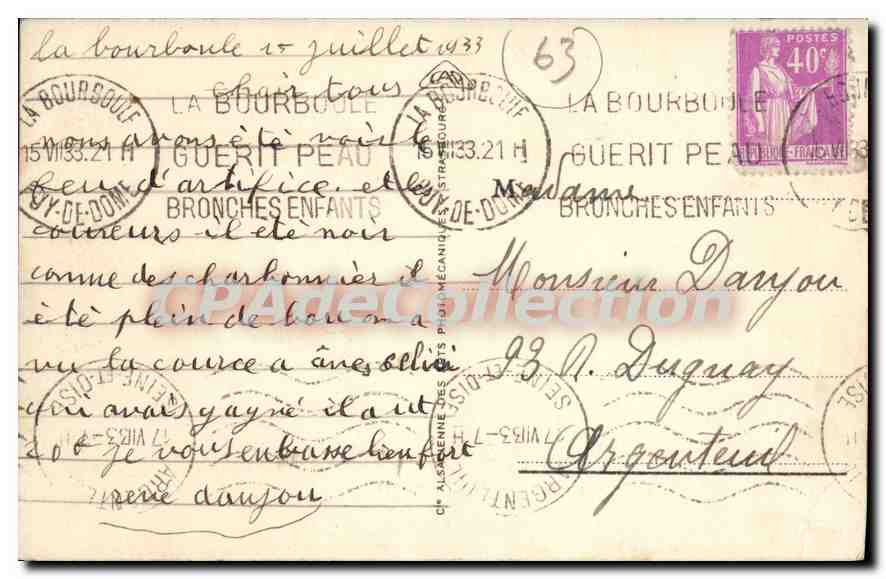 La bourboule 15 juillet 1933
63
chair tous
nous avons étè voir le
feu d'artifice et le
coureurs il étè noir
comme des charbonnièr il
étè plein de boue on a
vu la cource a ânes celui
qui avais gagné il a ut
20f je vous enbrasse bien fort
rené danjou
LA BOURBOULE
15 VII 33.21 H
PUY-DE-DOME
LA BOURBOULE
GUERIT PEAU
BRONCHES ENFANTS
LA BOURBOULE
15 VII 33.21 H
PUY-DE-DOME
LA BOURBOULE
GUERIT PEAU
BRONCHES ENFANTS
POSTES
40c
CAP
Cie ALSACIENNE DES ARTS PHOTOMÉCANIQUES, STRASBOURG
Madame
Monsieur Danjou
93 R. Duguay
Argenteuil
ARGENTEUIL
17 VII 33-7 H
SEINE-ET-OISE
ARGENTEUIL
17 VII 33-7 H
SEINE-ET-OISE
CPAdeCollection